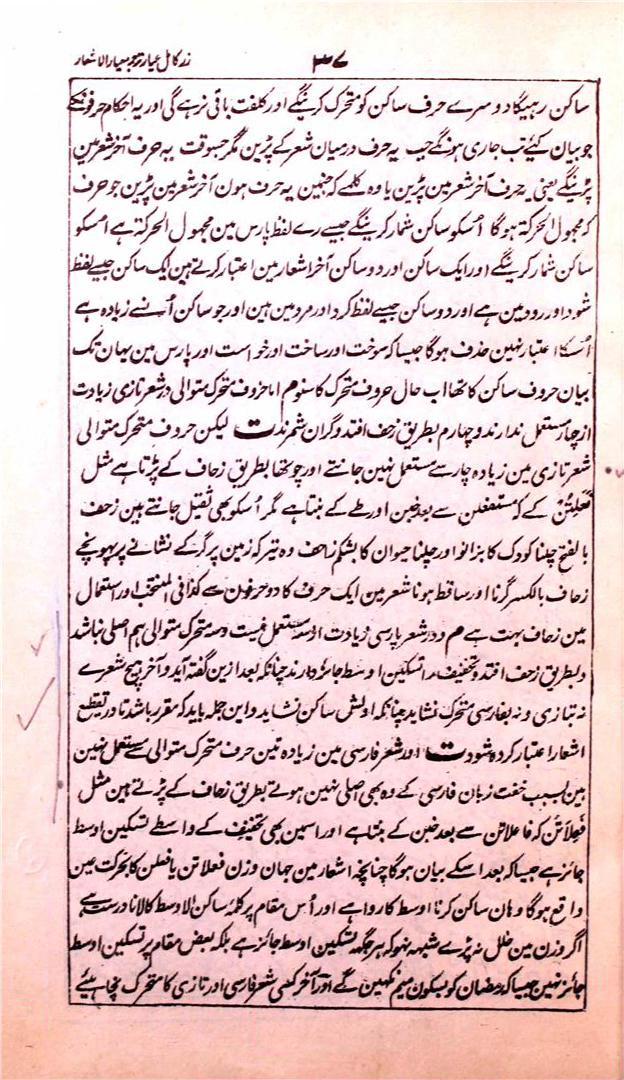 زر کامل عیار ترجمہ معیار الاشعار
۳۷
ساکن رہیگا دوسرے حرف ساکن کو متحرک کرینگے اور کلفت باقی نرہے گی اور یہ احکام حرفونکے
جو بیان کیئے تب جاری ہونگے جب یہ حرف درمیان شعر کے پڑین مگر جسوقت یہ حرف آخر شعر مین
پڑینگے یعنی یہ حرف آخر شعر مین پڑین یا وہ کلمے کہ جنمین یہ حرف ہون آخر شعر مین پڑین جو حرف
کہ مجہول الحرکۃ ہوگا اُسکو ساکن شمار کرینگے جیسے رے لفظ پارس مین مجہول الحرکۃ ہے اُسکو
ساکن شمار کرینگے اور ایک ساکن اور دو ساکن آخر اشعار مین اعتبار کرتے ہین ایک ساکن جیسے لفظ
شود اور رود مین ہے اور دو ساکن جیسے لفظ کرد اور مرد مین ہین اور جو ساکن اُنسے زیادہ ہے
اُسکا اعتبار نہین حذف ہوگا جیسا کہ سوخت اور ساخت اور خواست اور پارس مین یہان تک
بیان حروف ساکن کا تھا اب حال حروف متحرک کا سنو م اما حروف متحرک متوالی در شعر تازی زیادت
از چہار مستعمل ندارند و چہارم بطریق زحف افتد و گران شمرند ت لیکن حروف متحرک متوالی
شعر تازی مین زیادہ چار سے مستعمل نہین جانتے اور چوتھا بطریق زحاف کے پڑتا ہے مثل
فَعَلَتُن کے کہ مستفعلن سے بعد خبن اور طے کے بنتا ہے مگر اُسکو بھی ثقیل جانتے ہین زحف
بالفتح چلنا کودک کا بزانو اور چلنا حیوان کا بشکم زاحف وہ تیر کہ زمین پر گر کے نشانے پر پہونچے
زحاف بالکسر گرنا اور ساقط ہونا شعر مین ایک حرف کا دو حرفون سے کذافی المنتخب اور استعمال
مین زحاف بہت ہے م و در شعر پارسی زیادت از سہ مستعمل نیست و سہ متحرک متوالی ہم اصلی نباشد
و بطریق زحف افتد و تخفیف را تسکین اوسط جائز دارند چنانکہ بعد ازین گفتہ آید و آخر ہیچ شعرے
نہ بتازی و نہ بفارسی متحرک نشاید چنانکہ اولش ساکن نشاید و این جملہ باید کہ مقرر باشد تا در تقطیع
اشعار اعتبار کردہ شود ت اور شعر فارسی مین زیادہ تین حرف متحرک متوالی سے مستعمل نہین
ہین بسبب خفت زبان فارسی کے وہ بھی اصلی نہین ہوتے بطریق زحاف کے پڑتے ہین مثل
فَعِلاَتن کہ فاعلاتن سے بعد خبن کے بنتا ہے اور اسمین بھی تخفیف کے واسطے تسکین اوسط
جائز ہے جیسا کہ بعد اسکے بیان ہوگا چنانچہ اشعار مین جہان وزن فعلاتن یا فعلن کا بحرکت عین
واقع ہوگا وہان ساکن کرنا اوسط کا روا ہے اور اُس مقام پر کلمۂ ساکن الاوسط کا لانا درست ہے
اگر وزن مین خلل نہ پڑے شبہہ نہو کہ ہر جگہہ تسکین اوسط جائز ہے بلکہ بعض مقام پر تسکین اوسط
جائز نہین جیسا کہ رمضان کو بسکون میم نکہین گے اور آخر کسی شعر فارسی اور تازی کا متحرک نچاہیئے